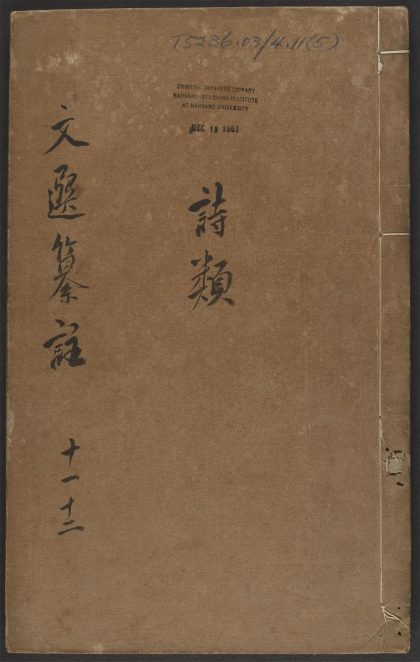 T5236.03/4.11(5)
CHINESE-JAPANESE LIBRARY
HARVARD-YENCHING INSTITUTE
AT HARVARD UNIVERSITY
DEC 18 1961
詩類
文選纂註 十一 十二